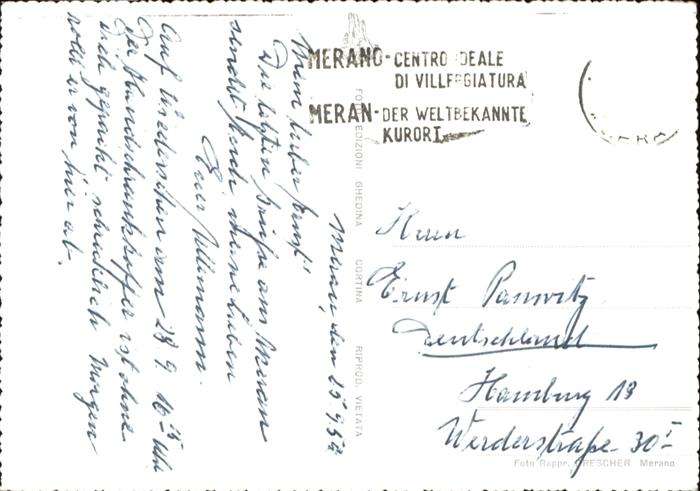 MERANO - CENTRO IDEALE
DI VILLEGGIATURA
MERAN - DER WELTBEKANNTE
KURORT
Meran, den 25.9.57
Mein lieber Ernst!
Die letzten Grüße aus Meran
sendet Heute, meine Lieben
Euer Ullimann.
Auf Wiedersehen am 28.9. 16 Uhr
Der Handschrankkoffer ist ohne
Dich gepackt schrecklich Morgen
rollt er von hier ab.
FOTO EDIZIONI GHEDINA CORTINA RIPROD. VIETATA
Herrn
Ernst Pannvitz
Deutschland
Hamburg 13
Werderstraße 30 I
Foto Rappr. DRESCHER Merano